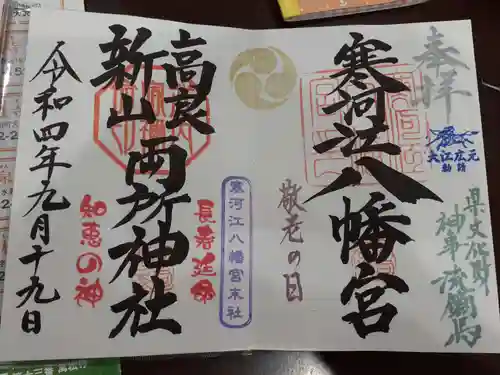 奉拝
大江広元
勧請
県文化財
神事 流鏑馬
寒河江八幡宮
敬老の日
寒河江八幡宮末社
長寿延命
高良
新山
両所神社
知恵の神
令和四年九月十九日